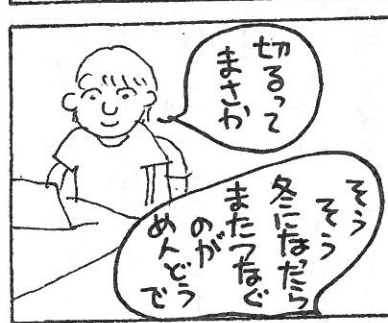 切るって
まさか
そう
そう
冬になったら
またつなぐ
のが
めんどうで